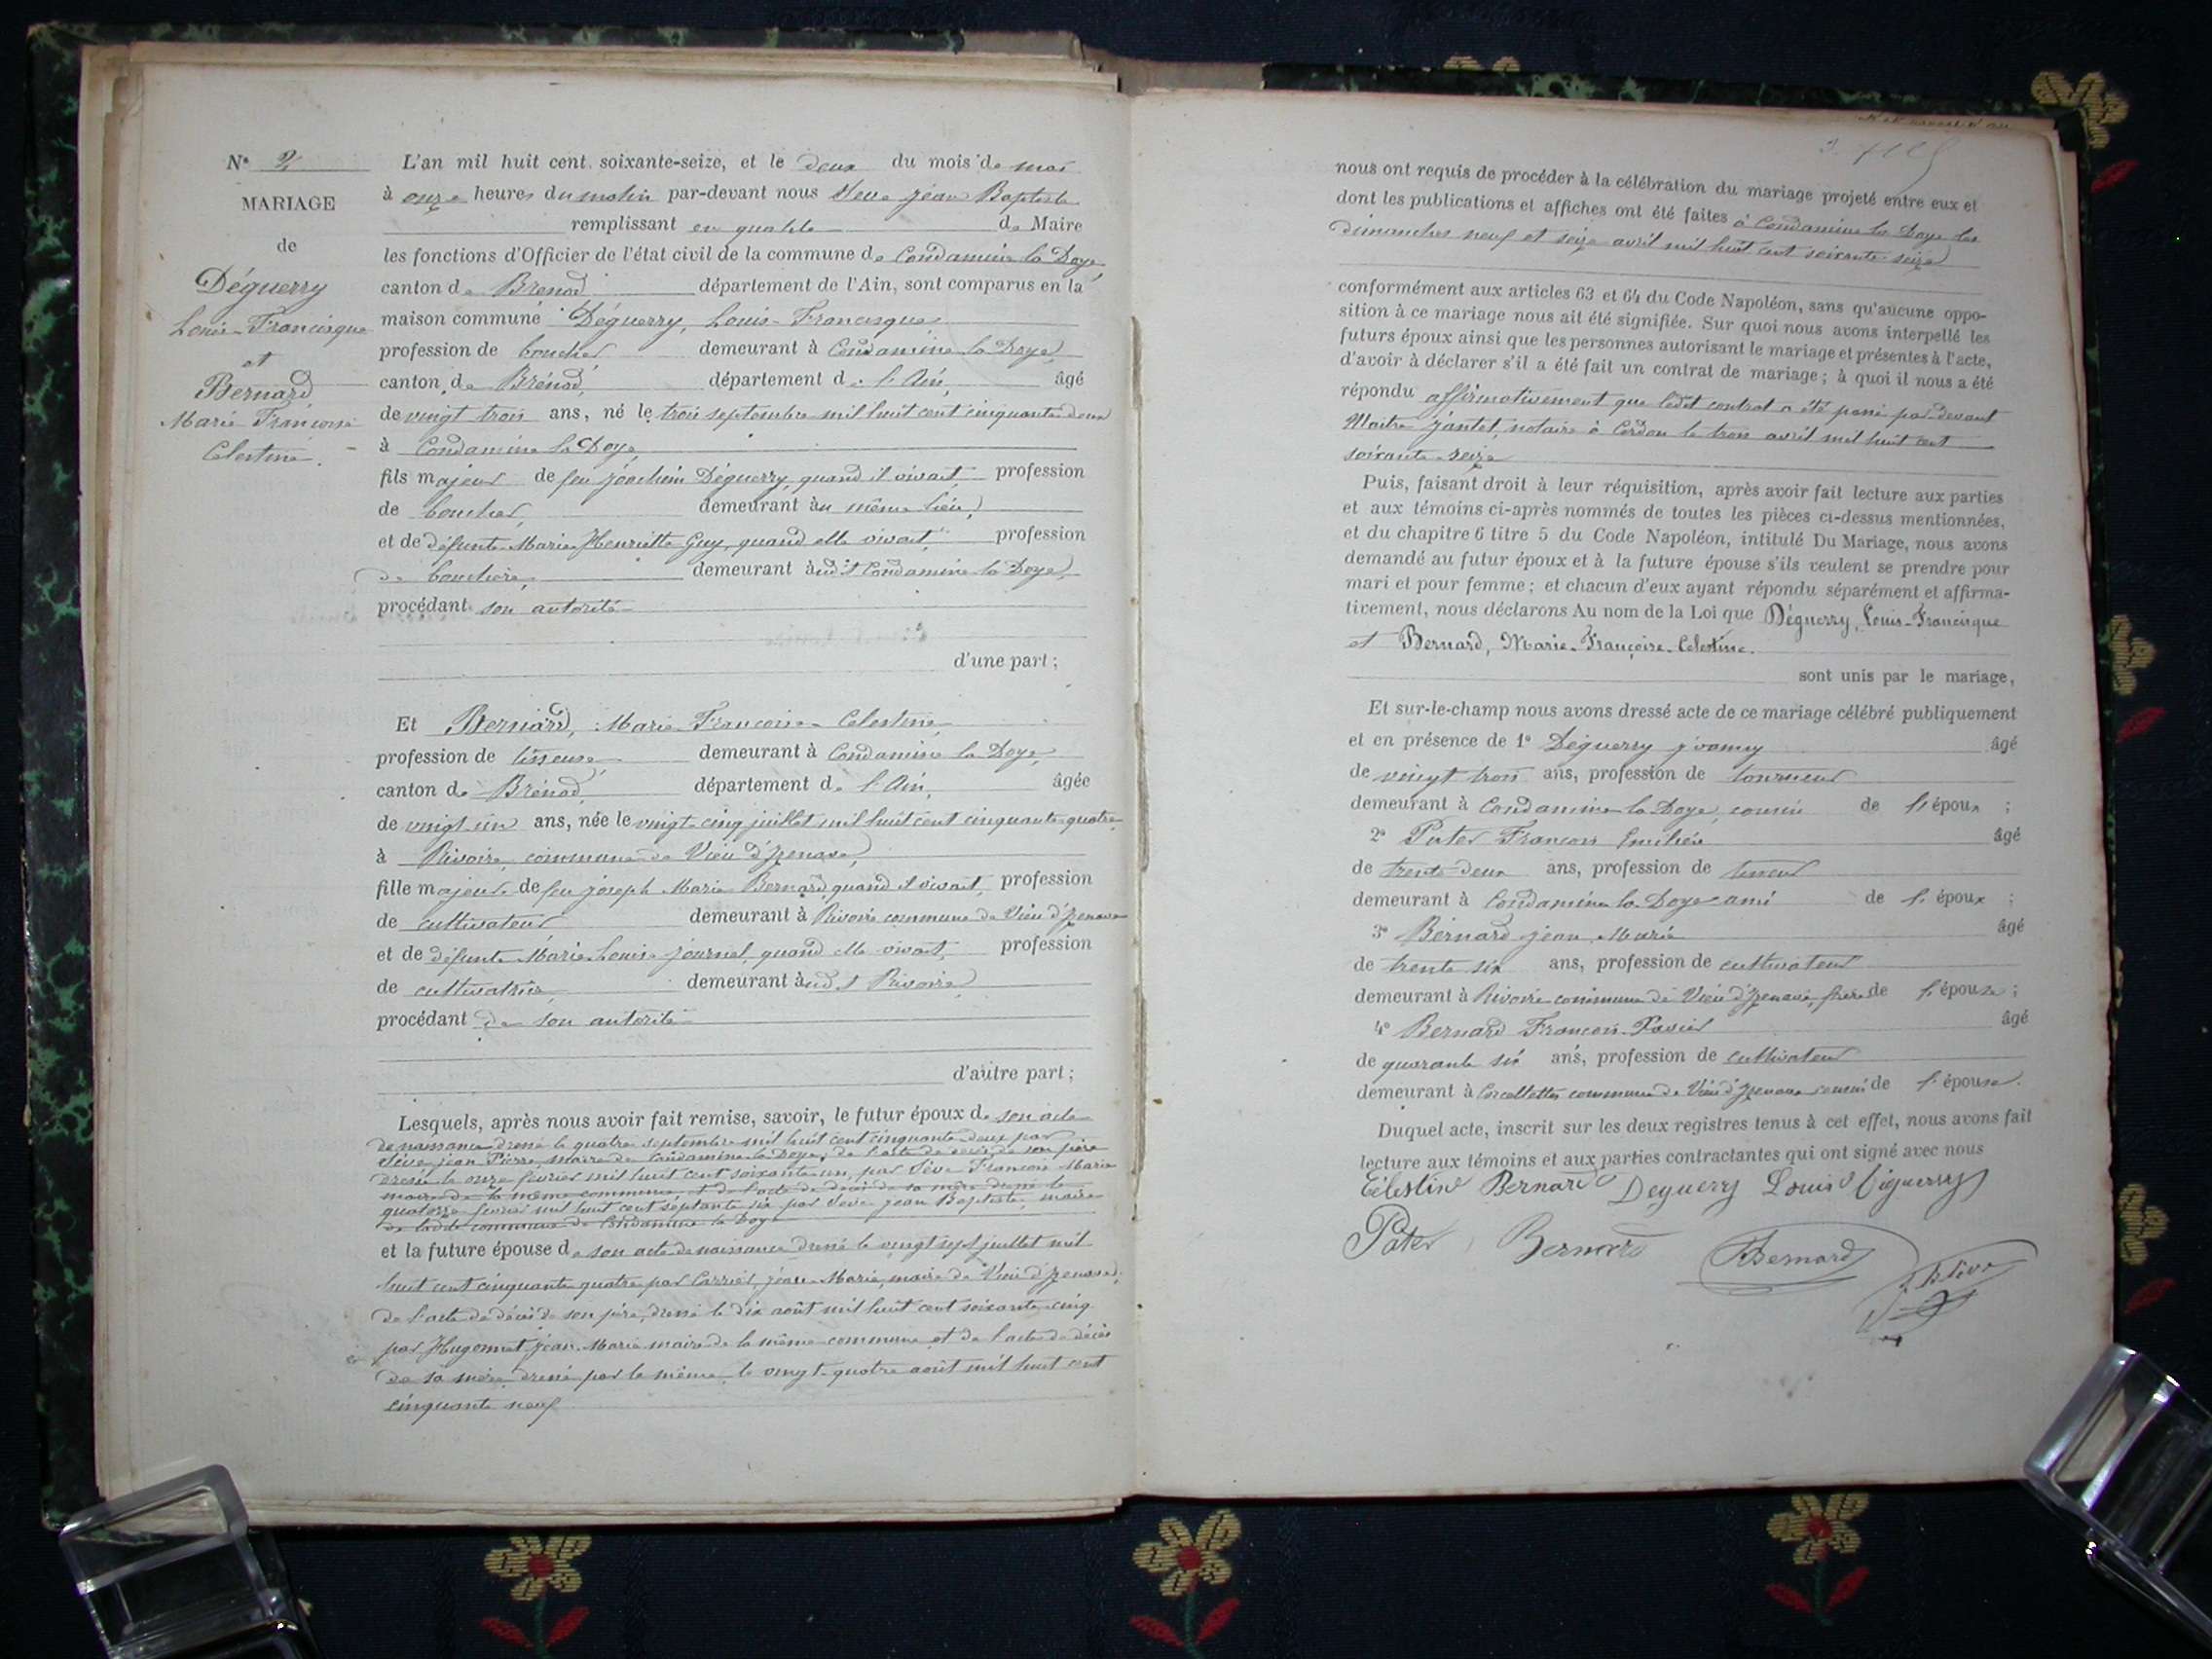 N° 2
MARIAGE
de
Déguerry
Louis-Francisque
et
Bernard
Marie Françoise
Celestine.
L'an mil huit cent soixante-seize, et le deux du mois de mai
à onze heures du matin par-devant nous Sève Jean Baptiste
remplissant en qualité de Maire
les fonctions d'Officier de l'état civil de la commune de Condamine la Doye,
canton de Brénod département de l'Ain, sont comparus en la
maison commune Déguerry, Louis-Francisque,
profession de boucher demeurant à Condamine la Doye,
canton de Brénod, département de l'Ain, âgé
de vingt trois ans, né le trois septembre mil huit cent cinquante deux
à Condamine la Doye,
fils majeur de feu Joachim Déguerry, quand il vivait, profession
de boucher, demeurant au même lieu,
et de défunte Marie Henriette Guy, quand elle vivait, profession
de bouchère, demeurant audit Condamine la Doye,
procédant son autorité
d'une part ;
Et Bernard, Marie-Françoise-Celestine,
profession de tisseuse demeurant à Condamine la Doye,
canton de Brénod, département de l'Ain, âgée
de vingt un ans, née le vingt-cinq juillet mil huit cent cinquante-quatre
à Rivoire, commune de Vieu d'Izenave,
fille majeure de feu Joseph Marie Bernard, quand il vivait, profession
de cultivateur demeurant à Rivoire commune de Vieu d'Izenave
et de défunte Marie-Louise Journel, quand elle vivait, profession
de cultivatrice, demeurant audit Rivoire,
procédant de son autorité
d'autre part ;
Lesquels, après nous avoir fait remise, savoir, le futur époux de son acte
de naissance dressé le quatre septembre mil huit cent cinquante-deux par
Sève Jean Pierre, maire de Condamine la Doye, de l'acte de décès de son père
dressé le onze février mil huit cent soixante un, par Sève François Marie
maire de la même commune, et de l'acte de décès de sa mère dressé le
quatorze février mil huit cent septante six par Sève Jean Baptiste, maire
de ladite commune de Condamine la Doye
et la future épouse de son acte de naissance dressé le vingt sept juillet mil
huit cent cinquante quatre par Carriel, Jean-Marie, maire de Vieu d'Izenave,
de l'acte de décès de son père, dressé le dix août mil huit cent soixante-cinq
par Hugonnet Jean-Marie maire de la même commune et de l'acte de décès
de sa mère dressé par le même, le vingt-quatre août mil huit cent
cinquante neuf
nous ont requis de procéder à la célébration du mariage projeté entre eux et
dont les publications et affiches ont été faites à Condamine la Doye les
dimanches neuf et seize avril mil huit cent soixante-seize
conformément aux articles 63 et 64 du Code Napoléon, sans qu'aucune oppo-
sition à ce mariage nous ait été signifiée. Sur quoi nous avons interpellé les
futurs époux ainsi que les personnes autorisant le mariage et présentes à l'acte,
d'avoir à déclarer s'il a été fait un contrat de mariage ; à quoi il nous a été
répondu affirmativement que ledit contrat a été passé par devant
Maître Jantet, notaire à Cerdon le trois avril mil huit cent
soixante-seize
Puis, faisant droit à leur réquisition, après avoir fait lecture aux parties
et aux témoins ci-après nommés de toutes les pièces ci-dessus mentionnées,
et du chapitre 6 titre 5 du Code Napoléon, intitulé Du Mariage, nous avons
demandé au futur époux et à la future épouse s'ils veulent se prendre pour
mari et pour femme ; et chacun d'eux ayant répondu séparément et affirma-
tivement, nous déclarons Au nom de la Loi que Déguerry, Louis-Francisque
et Bernard, Marie-Françoise-Celestine.
sont unis par le mariage,
Et sur-le-champ nous avons dressé acte de ce mariage célébré publiquement
et en présence de 1° Déguerry âgé
de vingt trois ans, profession de tourneur
demeurant à Condamine la Doye, cousin de l'époux ;
2° Pater François Emilien âgé
de trente-deux ans, profession de
demeurant à Condamine la Doye ami de l'époux ;
3° Bernard Jean Marie âgé
de trente six ans, profession de cultivateur
demeurant à Rivoire commune de Vieu d'Izenave, frère de l'épouse ;
4° Bernard François-Xavier âgé
de quarante six ans, profession de cultivateur
demeurant à commune de Vieu d'Izenave cousin de l'épouse.
Duquel acte, inscrit sur les deux registres tenus à cet effet, nous avons fait
lecture aux témoins et aux parties contractantes qui ont signé avec nous
Célestine Bernard Deguerry Louis Déguerry
Pater Bernard Bernard
J. B. Sève